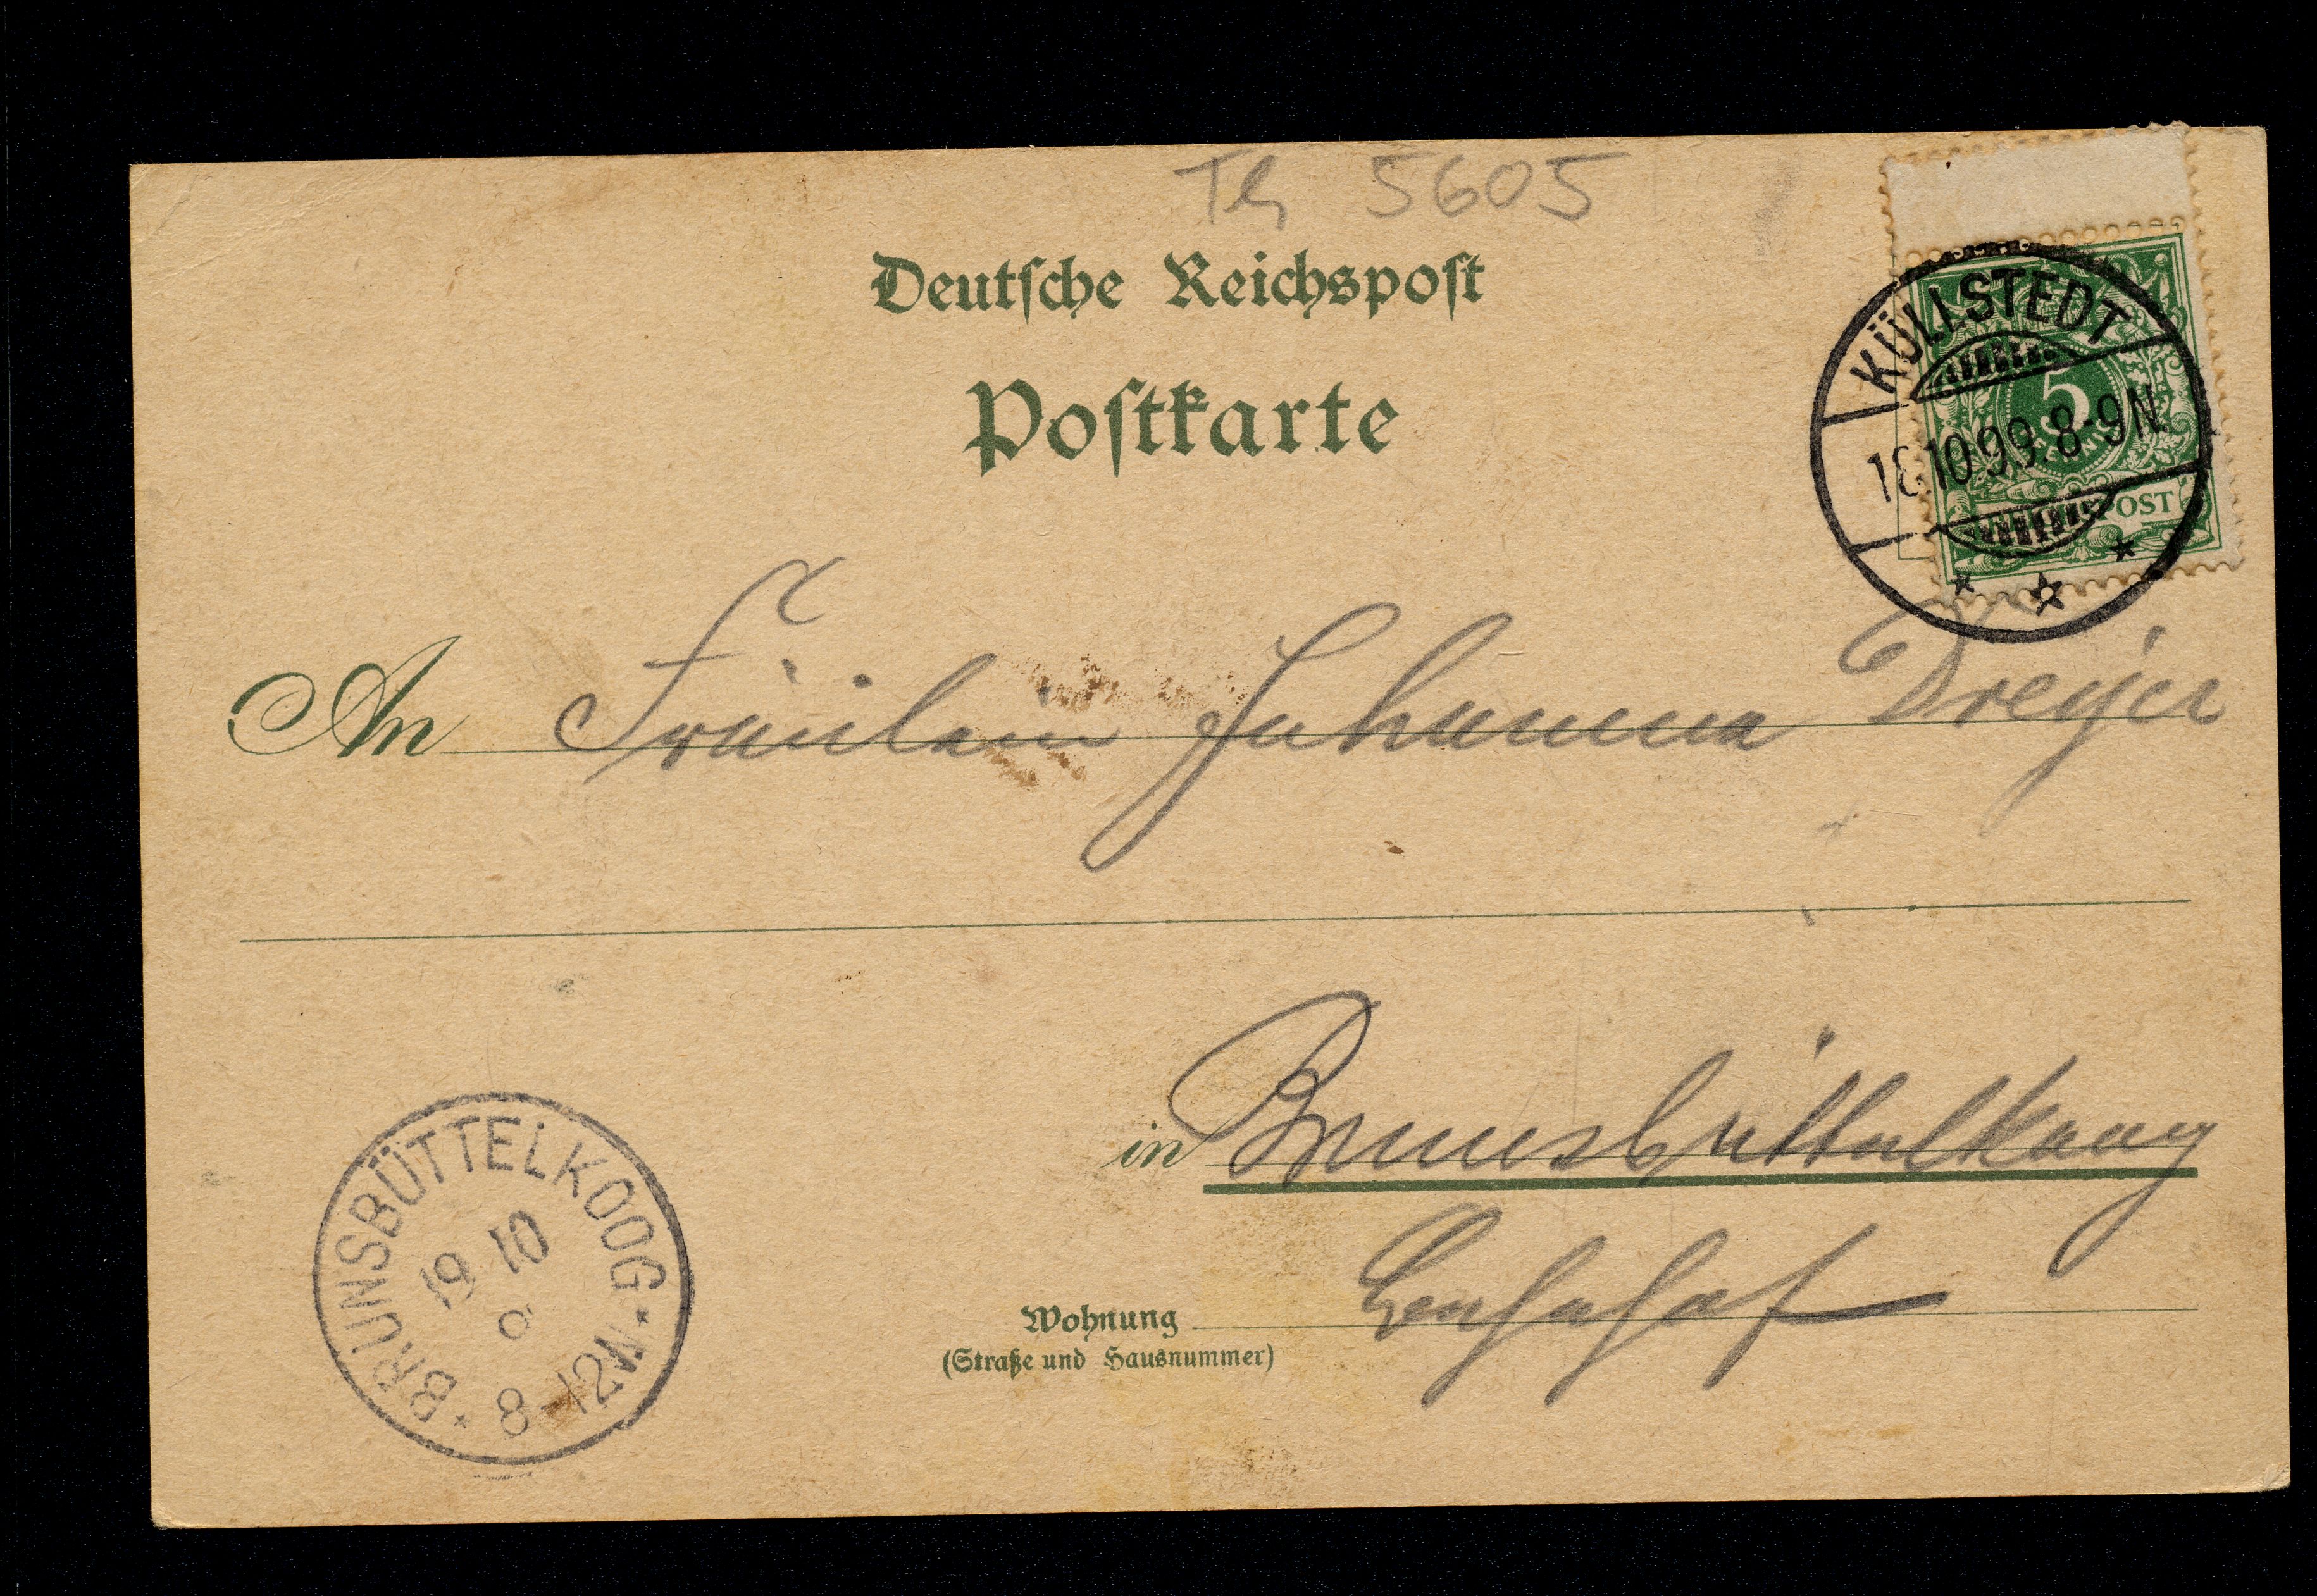 Th 5605
Deutsche Reichspost
Postkarte
KÜLLSTEDT
10 99. 8-9 N.
5
POST
An Fräulein Johanna Dreyer
in Brunsbüttelkoog
Wohnung
(Straße und Hausnummer)
BRUNSBÜTTELKOOG
19 10
8-12 N.